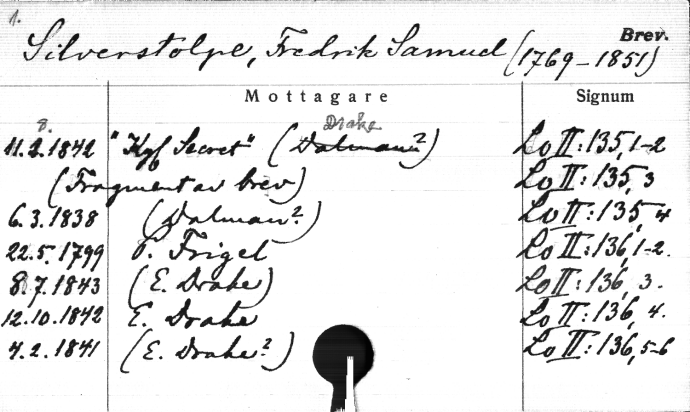 1.
Silverstolpe, Fredrik Samuel (1769–1851)
Brev.
Mottagare
Signum
8.
Drake
11.2.1842 "Kgl Secret" (Dalman?) Lo II:135,1-2
(Fragment av brev) Lo II:135,3
6.3.1838 (Dalman?) Lo II:135,4
22.5.1799 P. Frigel Lo II:136,1-2.
8.7.1843 (E. Drake) Lo II:136, 3.
12.10.1842 E. Drake Lo II:136, 4.
4.2.1841 (E. Drake?) Lo II:136,5-6